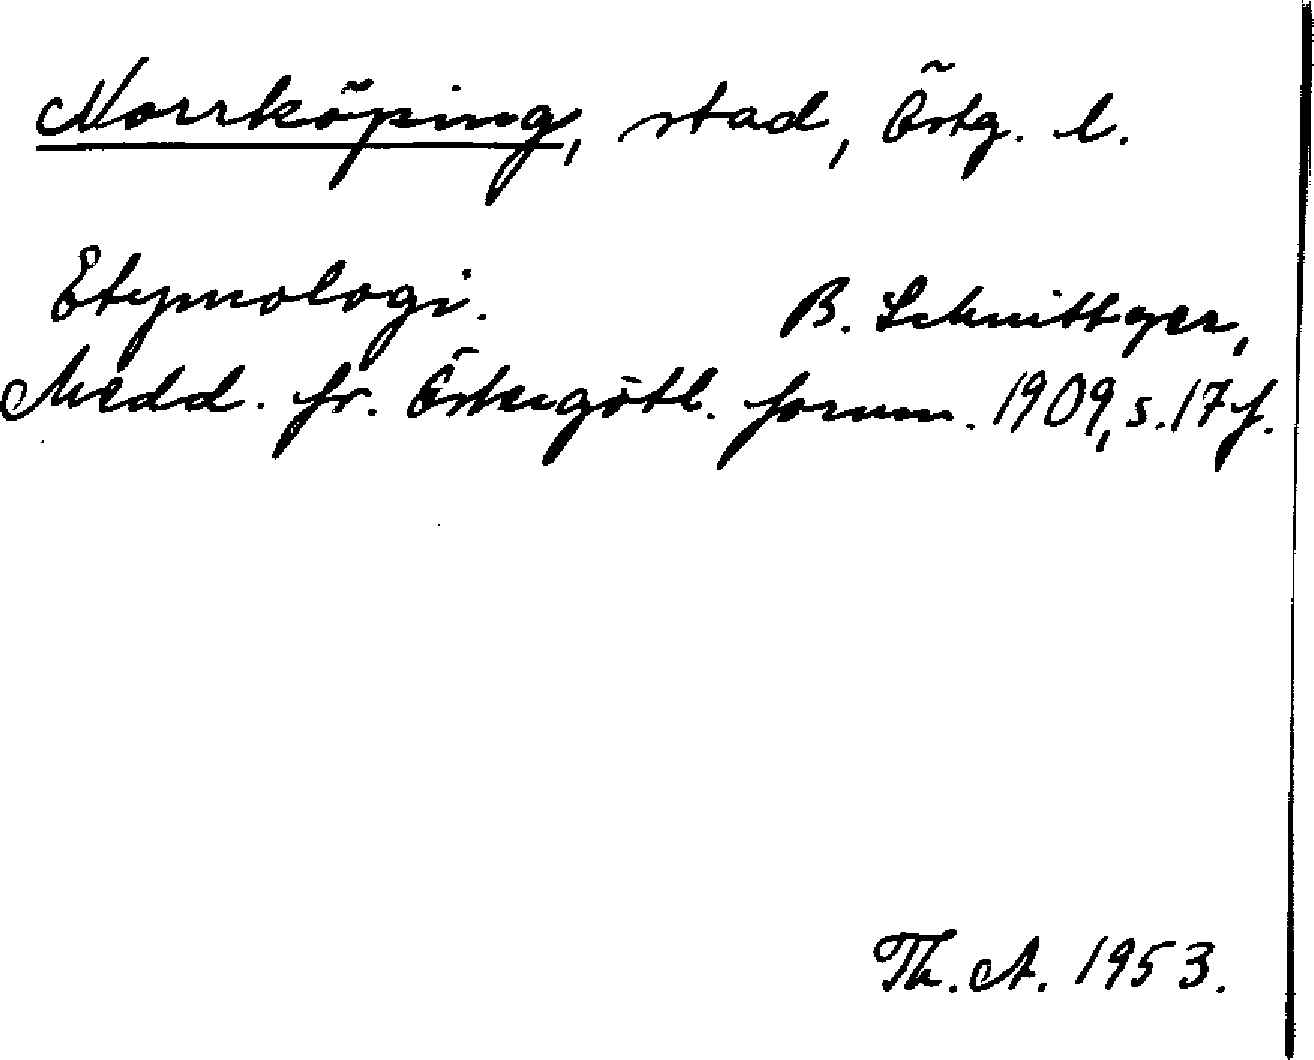 Norrköping, stad, Östg. l.
Etymologi. B. Schnittger,
Medd. fr. Östergötl. fornm. 1909, s. 17 f.
Th. A. 1953.